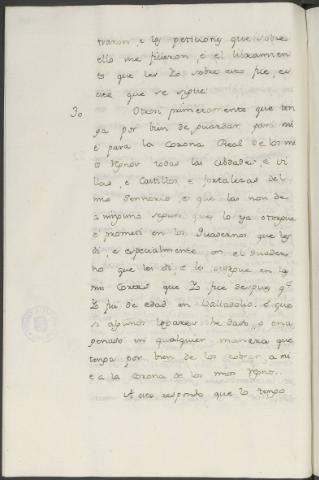 traron, e las peticiones que sobre
ello me ficieron, e el libramien
to que les Yo sobre ello fice, es
este que se sigue
30 Otrosi primeramente que ten
ga por bien de guardar para mi
e para la Corona Real de los mi
os Regnos todas las cibdades, e vi
llas, e Castillos e fortalezas del
mio Sennorio, e que las non de
a ninguno segun que lo ya otorgue
e prometi en los Quadernos que les
di, e especialmente en el Quader
no que les di, e les otorgue en las
mis Cortes que Yo fice despues q.e
Yo fui de edad en Valladolid. E que
si algunos logares he dado, o ena
genado en qualquier manera que
tenga por bien de los cobrar a mi
e a la Corona de los mios Regnos.
A esto respondo que lo tengo